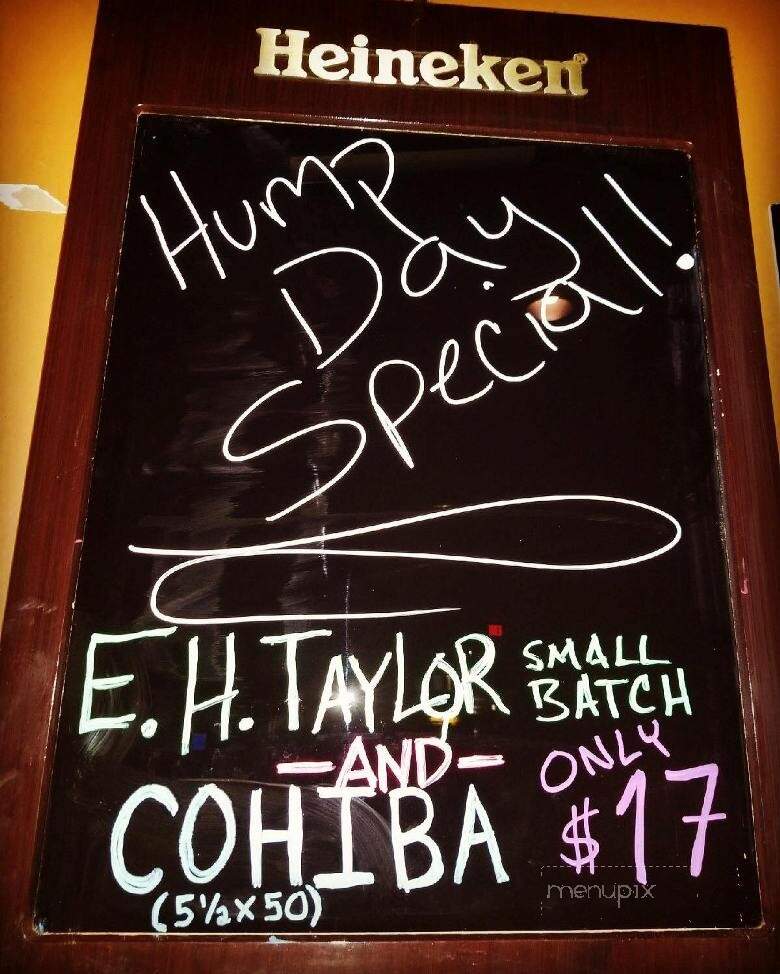 Heineken®
Hump
Day
Special!!
E.H. TAYLOR SMALL BATCH
-AND-
COHIBA ONLY $17
(5½ x 50)
menupix